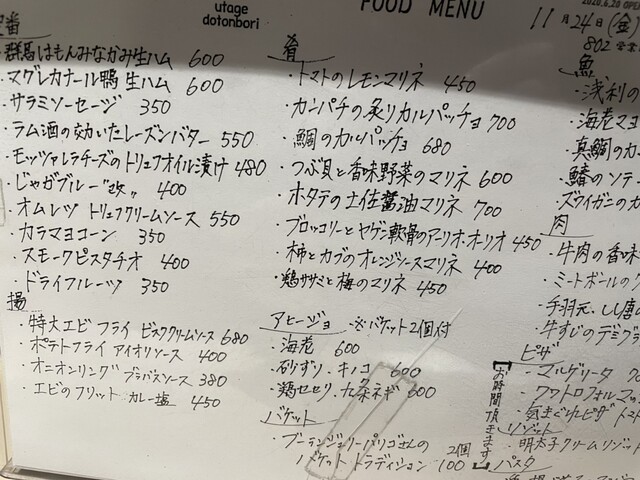 utage
dotonbori
FOOD MENU
2020.6.20 OPEN
11月24日(金)
番
・群馬はもんみなかみ生ハム 600
・マグレカナール鴨 生ハム 600
・サラミソーセージ 350
・ラム酒の効いたレーズンバター 550
・モッツァレラチーズのトリュフオイル漬け 480
・じゃがブルー"改" 400
・オムレツ トリュフクリームソース 550
・カラマヨコーン 350
・スモークピスタチオ 400
・ドライフルーツ 350
揚
・特大エビフライ ビスククリームソース 680
・ポテトフライ アイオリソース 400
・オニオンリング ブラバスソース 380
・エビのフリット カレー塩 450
肴
・トマトのレモンマリネ 450
・カンパチの炙りカルパッチョ 700
・鯛のカルパッチョ 680
・つぶ貝と香味野菜のマリネ 600
・ホタテの土佐醤油マリネ 700
・ブロッコリーとヤゲン軟骨のアーリオ・オーリオ 450
・柿とカブのオレンジソースマリネ 400
・鶏ササミと梅のマリネ 450
アヒージョ ・※バケット2個付
・海老 600
・砂ずり、キノコ 600
・鶏セセリ、九条ネギ 600
バケット
・ブーランジェリーパリゴさんの
バケットトラディション 2個 100
魚
・浅利の
・海老マヨ
・真鯛のカ
・鰆のソテ
・ズワイガニのカ
肉
・牛肉の香味
・ミートボールの
・手羽元、しし唐
・牛すじのデミグラ
ピザ
【お時間頂きます】
・マルゲリータ
・クワトロフォルマッ
・気まぐれピザ
リゾット
・明太子クリームリゾット
パスタ